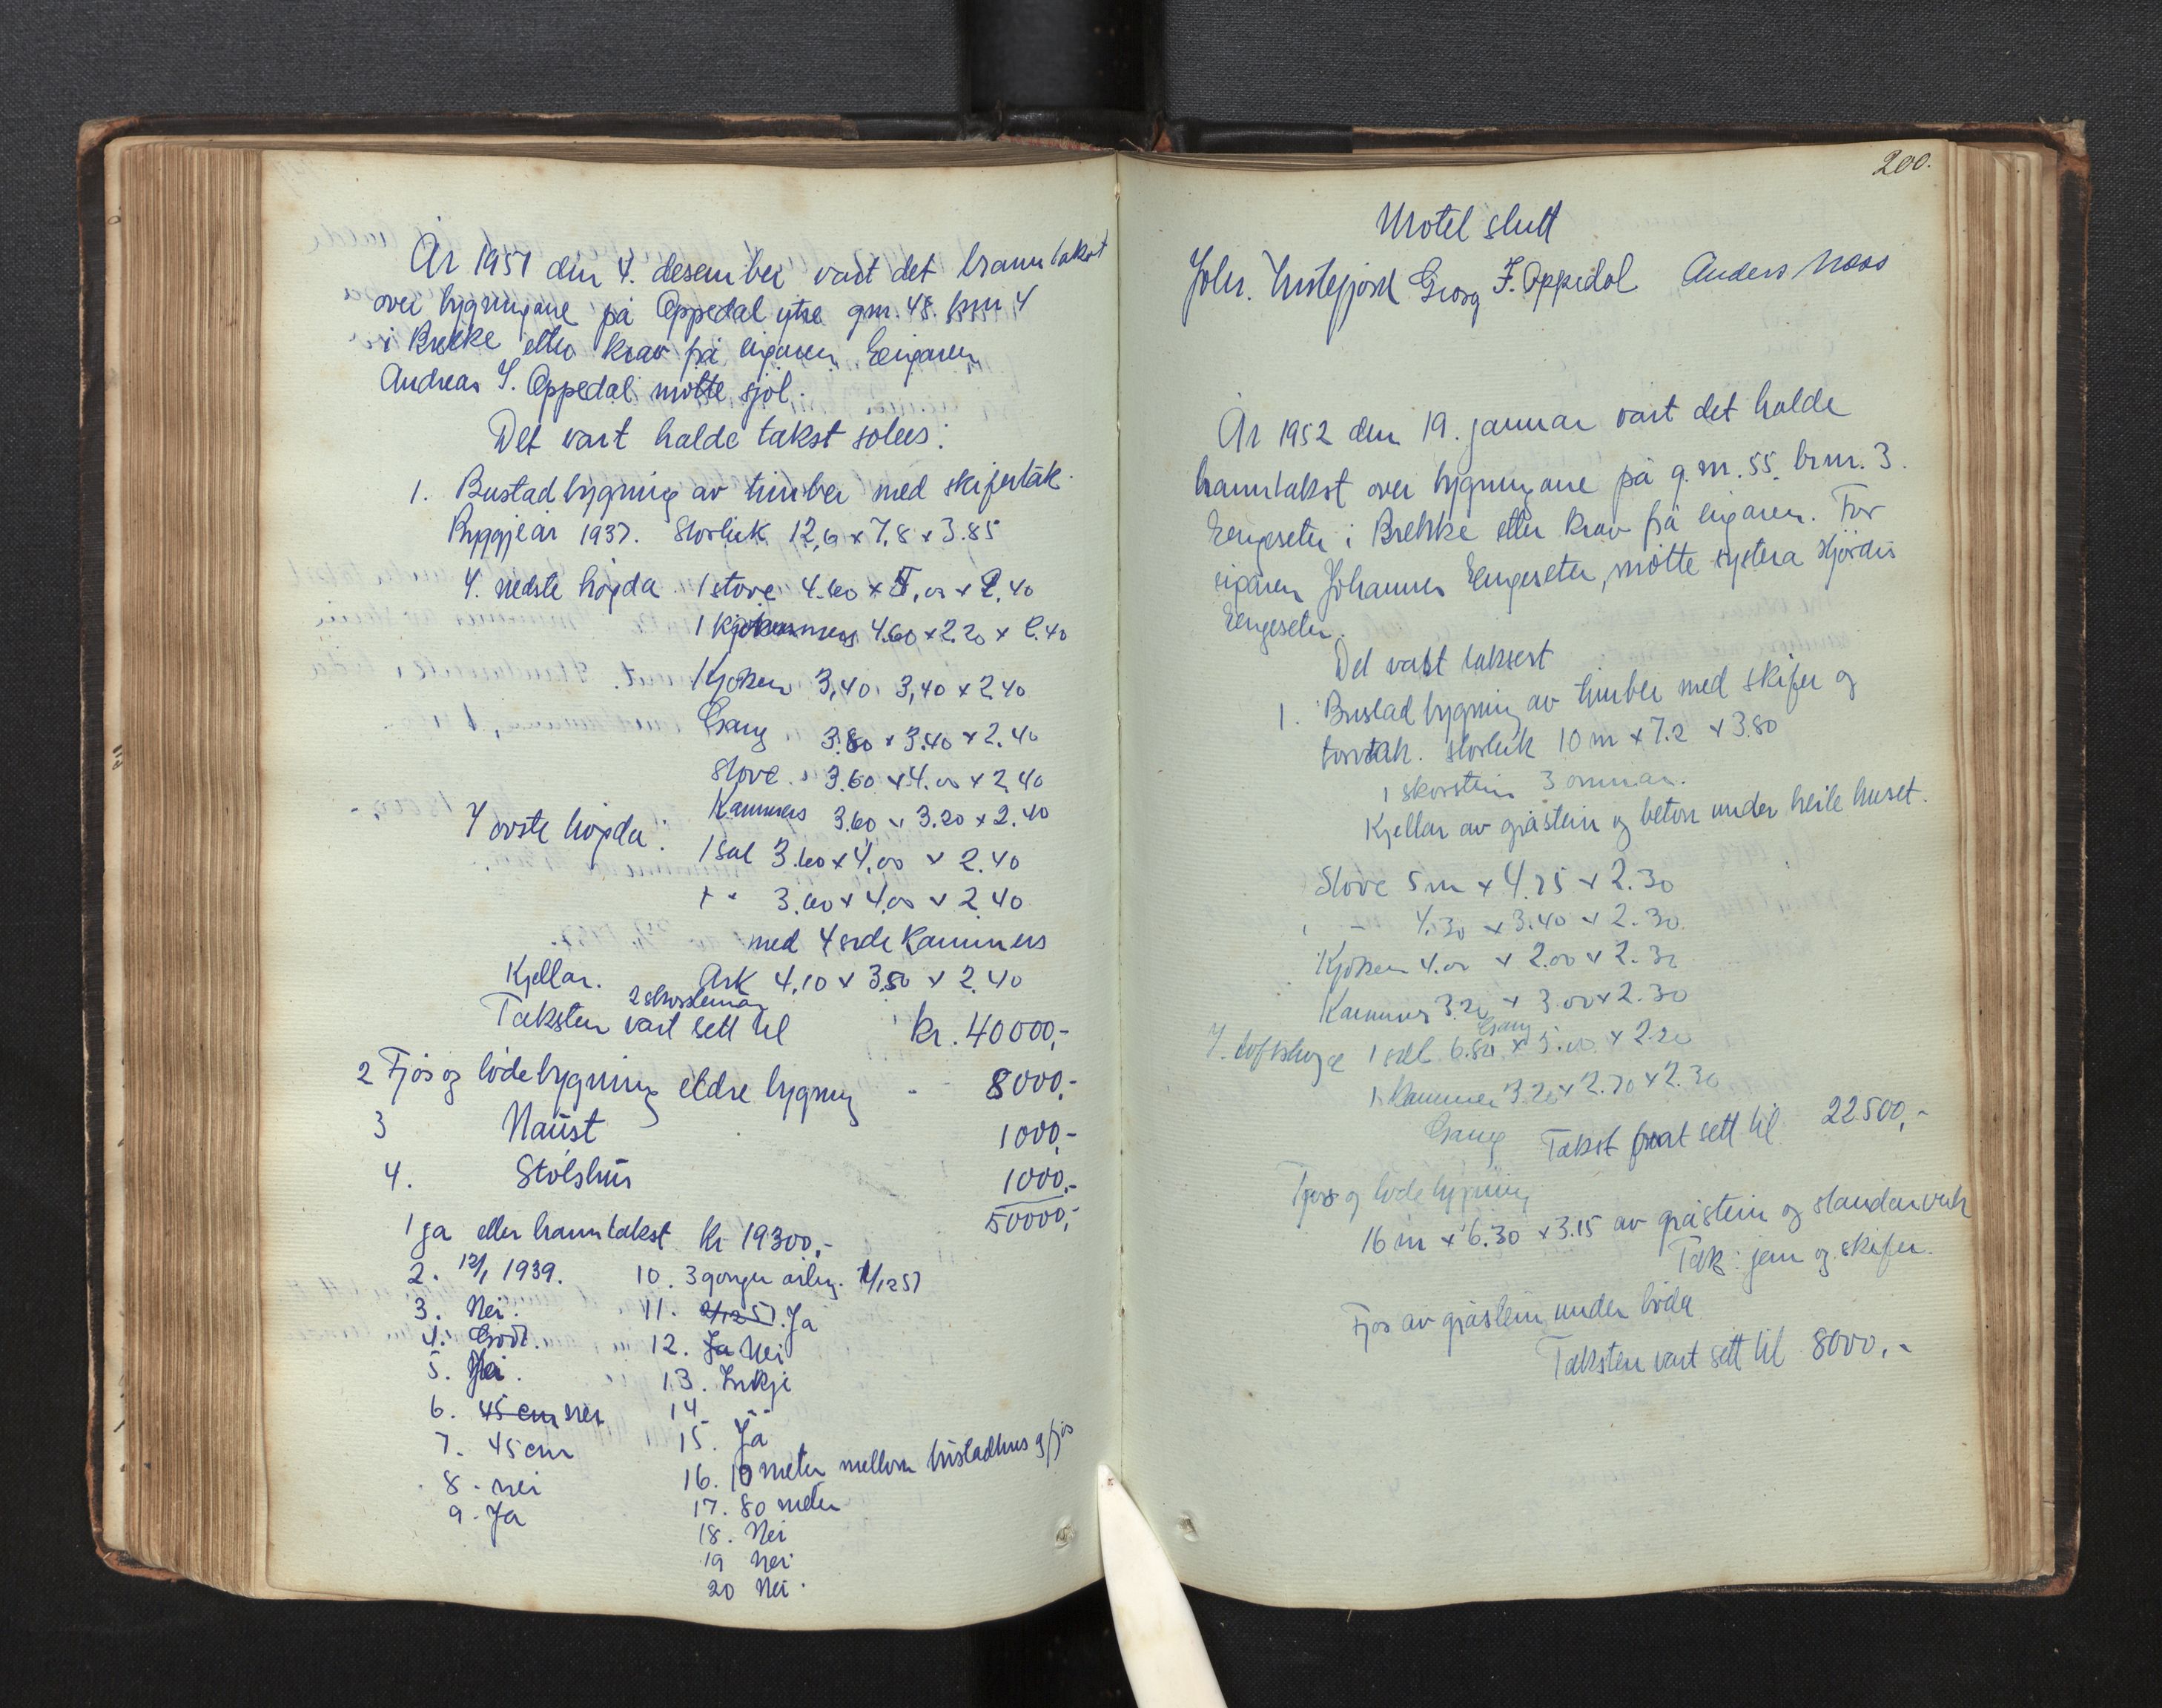 År 1951 den 4. desember vart det branntakst
over bygningane på Oppedal ytre gnr. 48. bnr 4
i Brekke etter krav frå eigaren. Eigaren
Andreas I. Oppedal møtte sjøl.
Det vart halde takst soleis:
1. Bustadbygning av timber med skifertak.
Byggjeår 1937. Storleik 12,6 x 7,8 x 3.85
I. nedste høgda 1 stove 4.60 x 5,00 x 2.40
1 kammers 4.60 x 2.20 x 2.40
1 Kjøken 3,40. 3,40 x 2.40
Gang 3.80 x 3.40 x 2.40
Stove. 3.60 x 4.00 x 2.40
Kammers 3.60 x 3.20 x 2.40
I øvste høgda: 1 sal 3.60 x 4,00 x 2.40
3.60 x 4,00 x 2.40
med 4 Kammers
Kjellar. Ark 4.10 x 3.50 x 2.40
2 skorsteinar
Taksten vart sett til kr. 40000,-
2 Fjøs og lødebygning eldre bygning - 8000,-
3 Naust 1000,-
4. Stølshus 1000,-
50000,-
1 ja eller branntakst kr 19300,-
2. 12/1 1939. 10. 3 gonger årleg. 1/12 51
3. Nei. 11. 2/12 51. Ja
4. Godt. 12. Ja Nei
5. Nei. 13. Inkje
6. 45 cm nei 14. - -
7. 45 cm 15. Ja
8. nei 16. 10 meter mellom bustadhus og fjøs
9. Ja 17. 80 meter
18. Nei
19 Nei
20 Nei.
200.
Motel slutt
Johs. Instefjord Georg F. Oppedal Anders Næss
År 1952 den 19. januar vart det halde
branntakst over bygningane på g.nr. 55. br.nr. 3.
Engeseter i Brekke etter krav frå eigaren. For
eigaren Johannes Engeseter, møtte systera Hjördis
Engeseter.
Det vart taksert
1. Bustadbygning av timber med skifer og
torvtak. Storleik 10 m x 7.2 x 3.80
1 skorstein 3 omnar.
Kjellar av gråstein og betong under heile huset.
Stove 5 m x 4.75 x 2.30
1 - 4.30 x 3.40 x 2.30
Kjøken 4.00 x 2.00 x 2.30
Kammers 3.20 x 3.00 x 2.30
Gang
I. loftshøgde 1 sal 6.80 x 5.00 x 2.20
1 Kammer 3.20 x 2.70 x 2.30
Gang Takst vart sett til 22500,-
Fjøs og lødebygning
16 m x 6.30 x 3.15 av gråstein og standarverk
Tak: jern og skifer.
Fjøs av gråstein under løda
Taksten vart sett til 8000,-